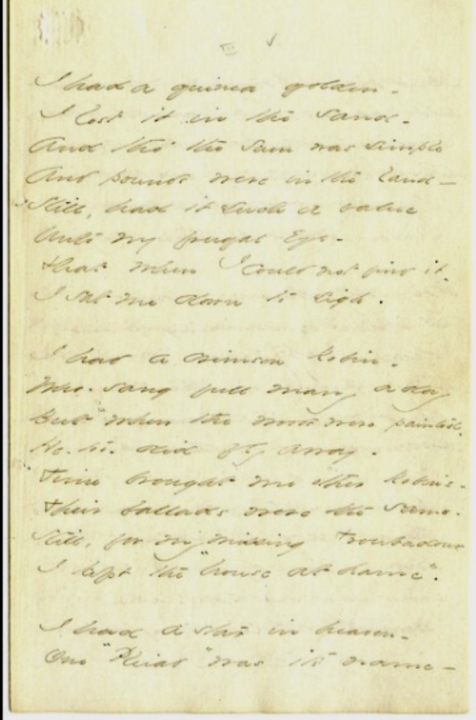 I had a guinea golden -
I lost it in the sand -
And tho' the sum was simple
And pounds were in the land -
Still, had it such a value
Unto my frugal Eye -
That when I could not find it -
I sat me down to sigh.
I had a crimson Robin -
Who sang full many a day
But when the woods were painted,
He, too, did fly away.
Time brought me other Robins -
Their ballads were the same -
Still, for my missing Troubadour
I kept the "house at hame".
I had a star in heaven -
One "Pleiad" was its name -